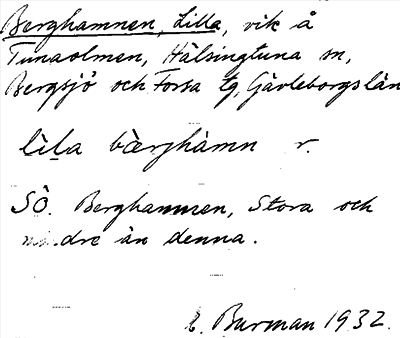 Berghamnen, Lilla, vik å
Tunaolmen, Hälsingtuna sn,
Bergsjö och Forsa tg, Gävleborgs län
lìl̩a bæ̀rghàmn r.
SO. Berghamnen, Stora och
mindre än denna.
E. Burman 1932.